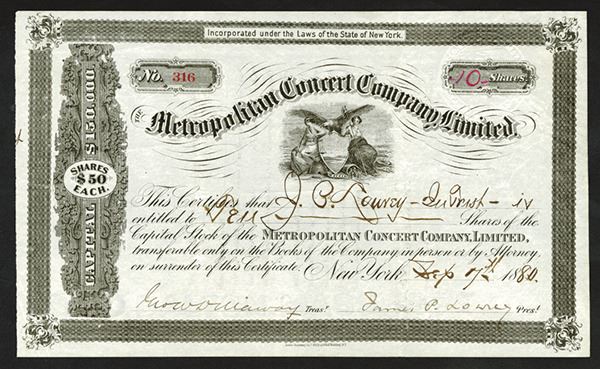 Incorporated under the Laws of the State of New York.
No. 316
10 Shares.
THE
Metropolitan Concert Company, Limited.
CAPITAL $150,000.
SHARES
$50
EACH.
This Certifies that J. P. Lowrey - In Trust - is
entitled to Ten Shares of the
Capital Stock of the METROPOLITAN CONCERT COMPANY, LIMITED,
transferable only on the Books of the Company in person or by Attorney
on surrender of this Certificate. New York Sep 17th 1880.
Treasr.
James P. Lowrey Prest.